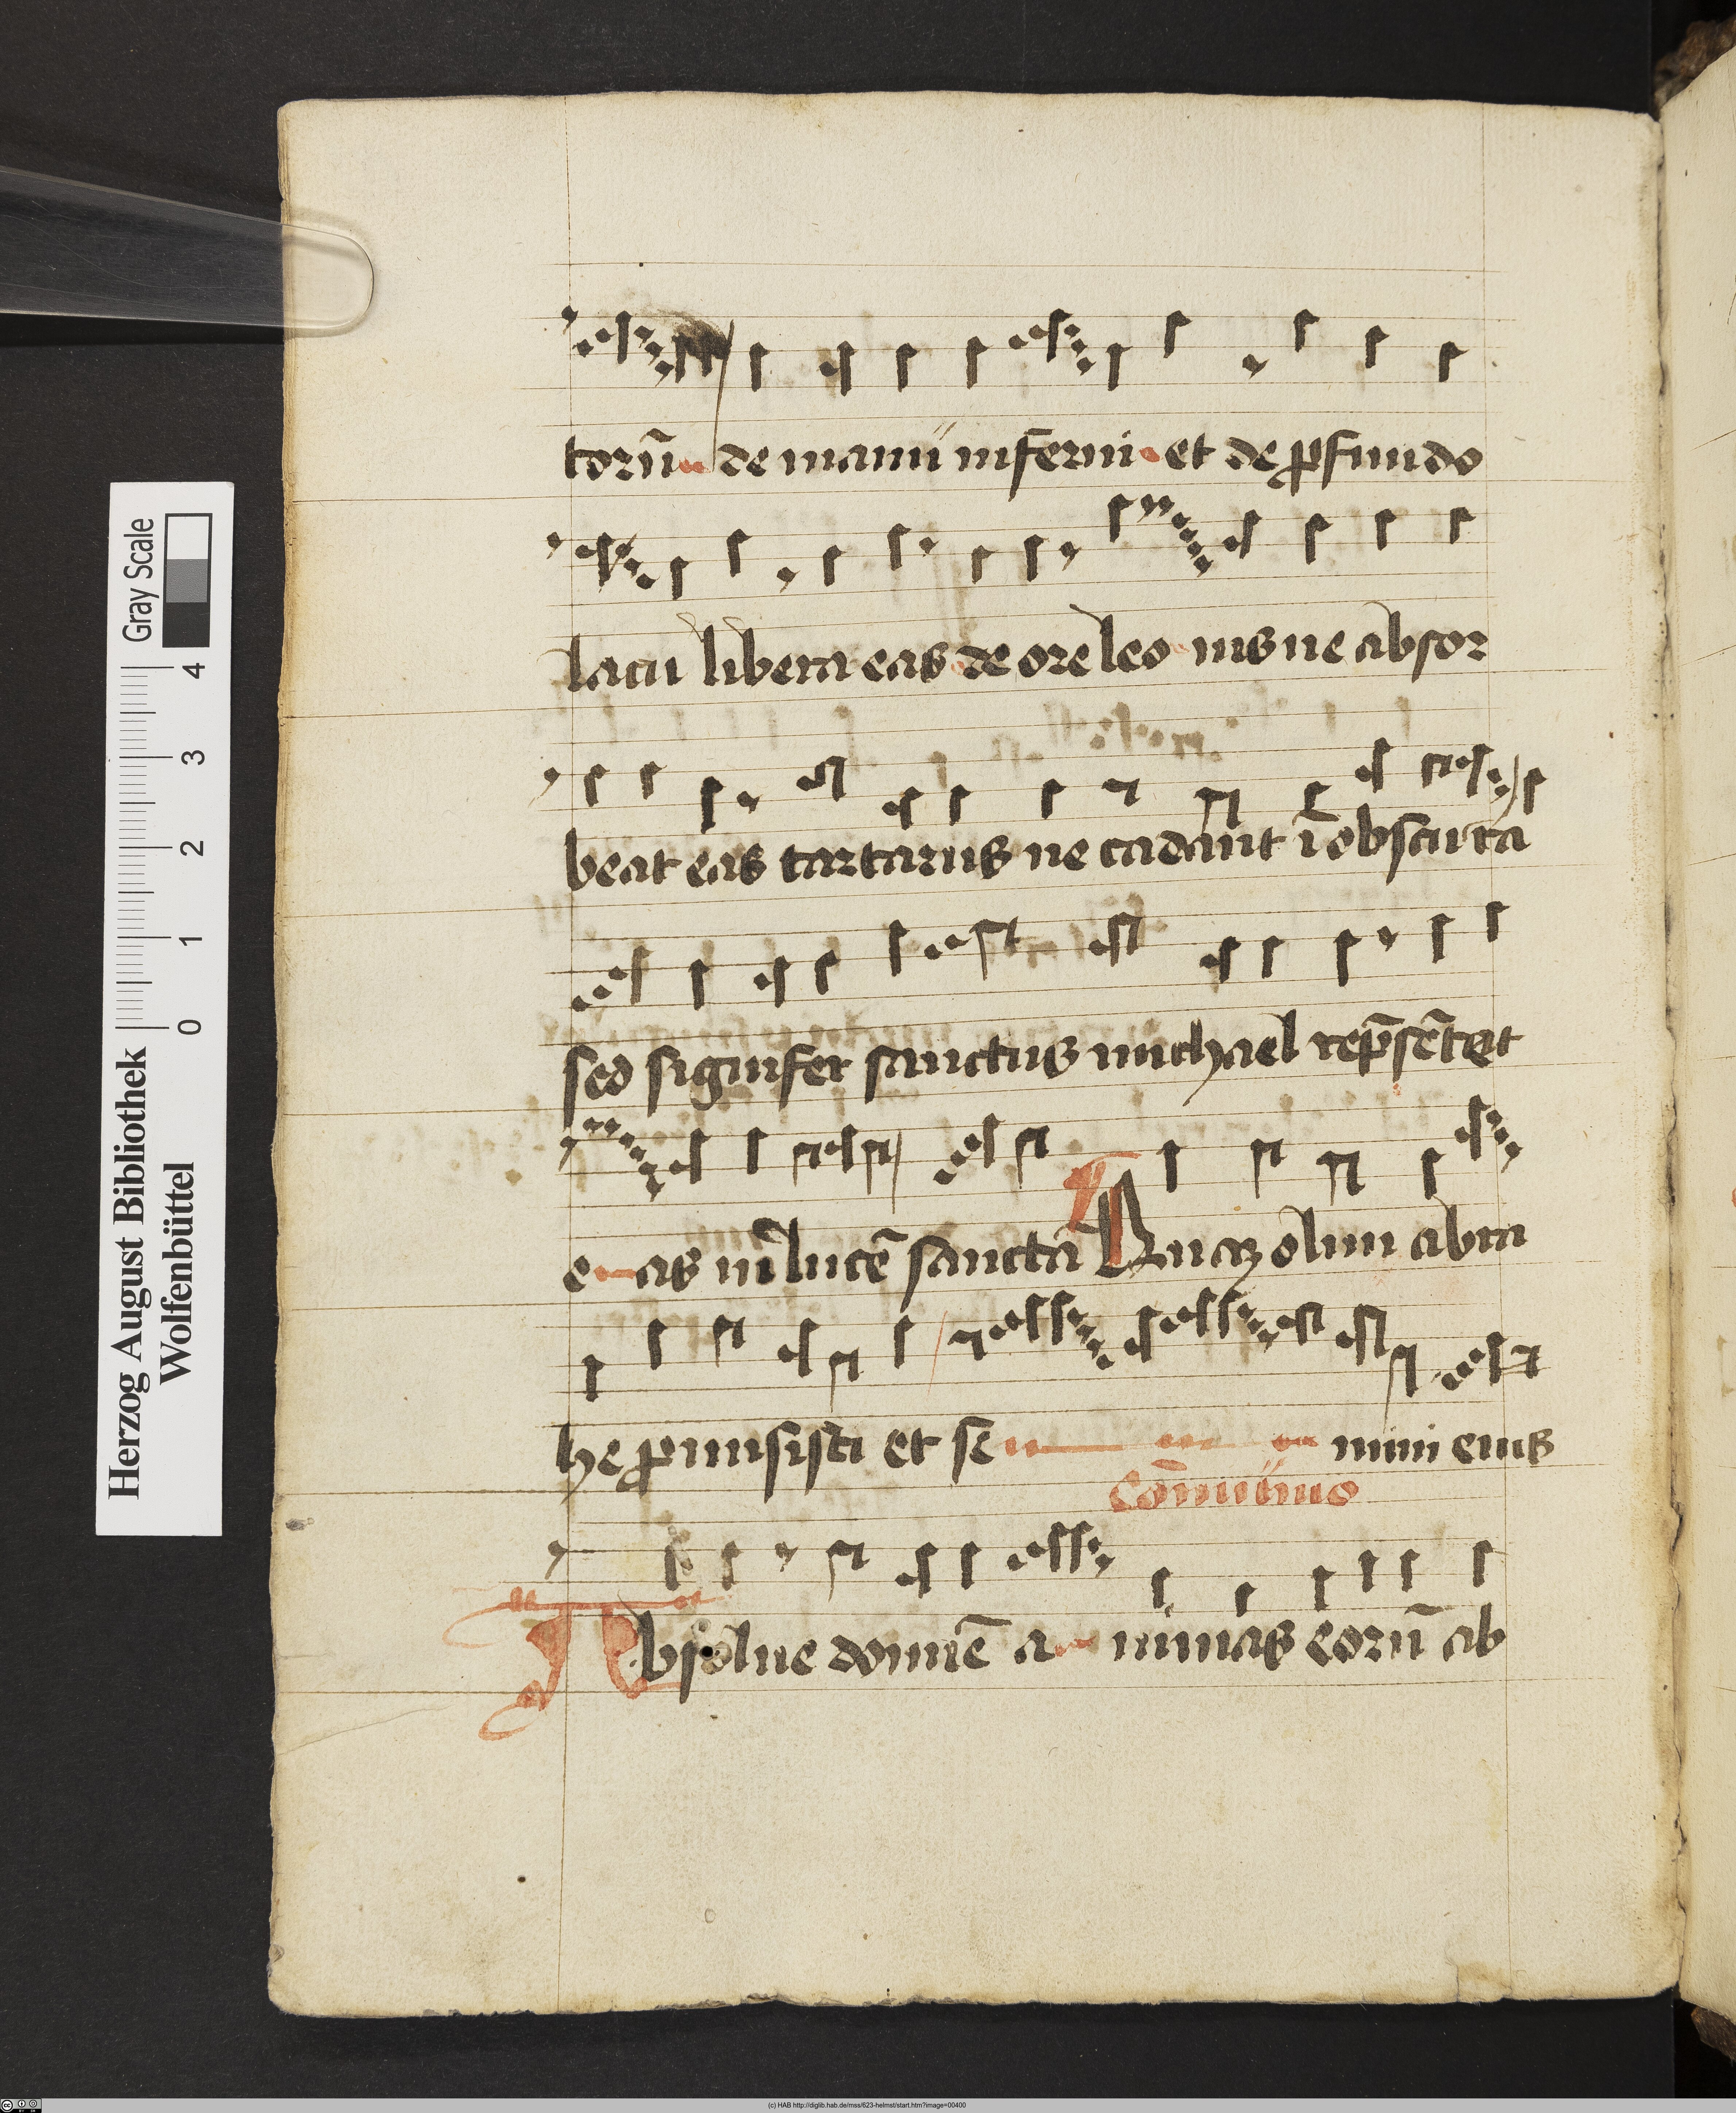 torū de manu inferni et de ꝓfundo
lacu libera eas de ore leo nis ne absor
beat eas tartarus ne cadant ī obscura
sed signifer sanctus michael rep̄sētet
e as in lucē sancta
Quaȝ olim abra
he ꝓmisisti et se mini eius
Cōmunio
Absolue domīe a nimas eorū ab
Herzog August Bibliothek
Wolfenbüttel
Gray Scale
0 1 2 3 4
(c) HAB http://diglib.hab.de/mss/623-helmst/start.htm?image=00400